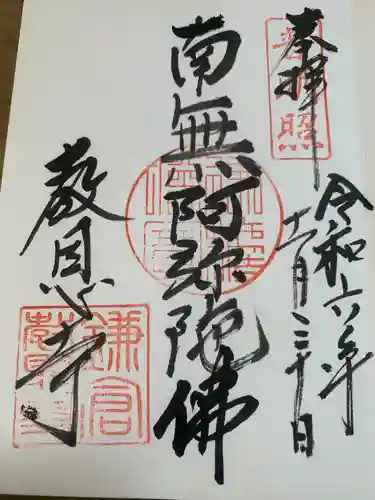 奉拝
令和六年
十一月三十日
南無阿弥陀佛
教恩寺
鎌倉